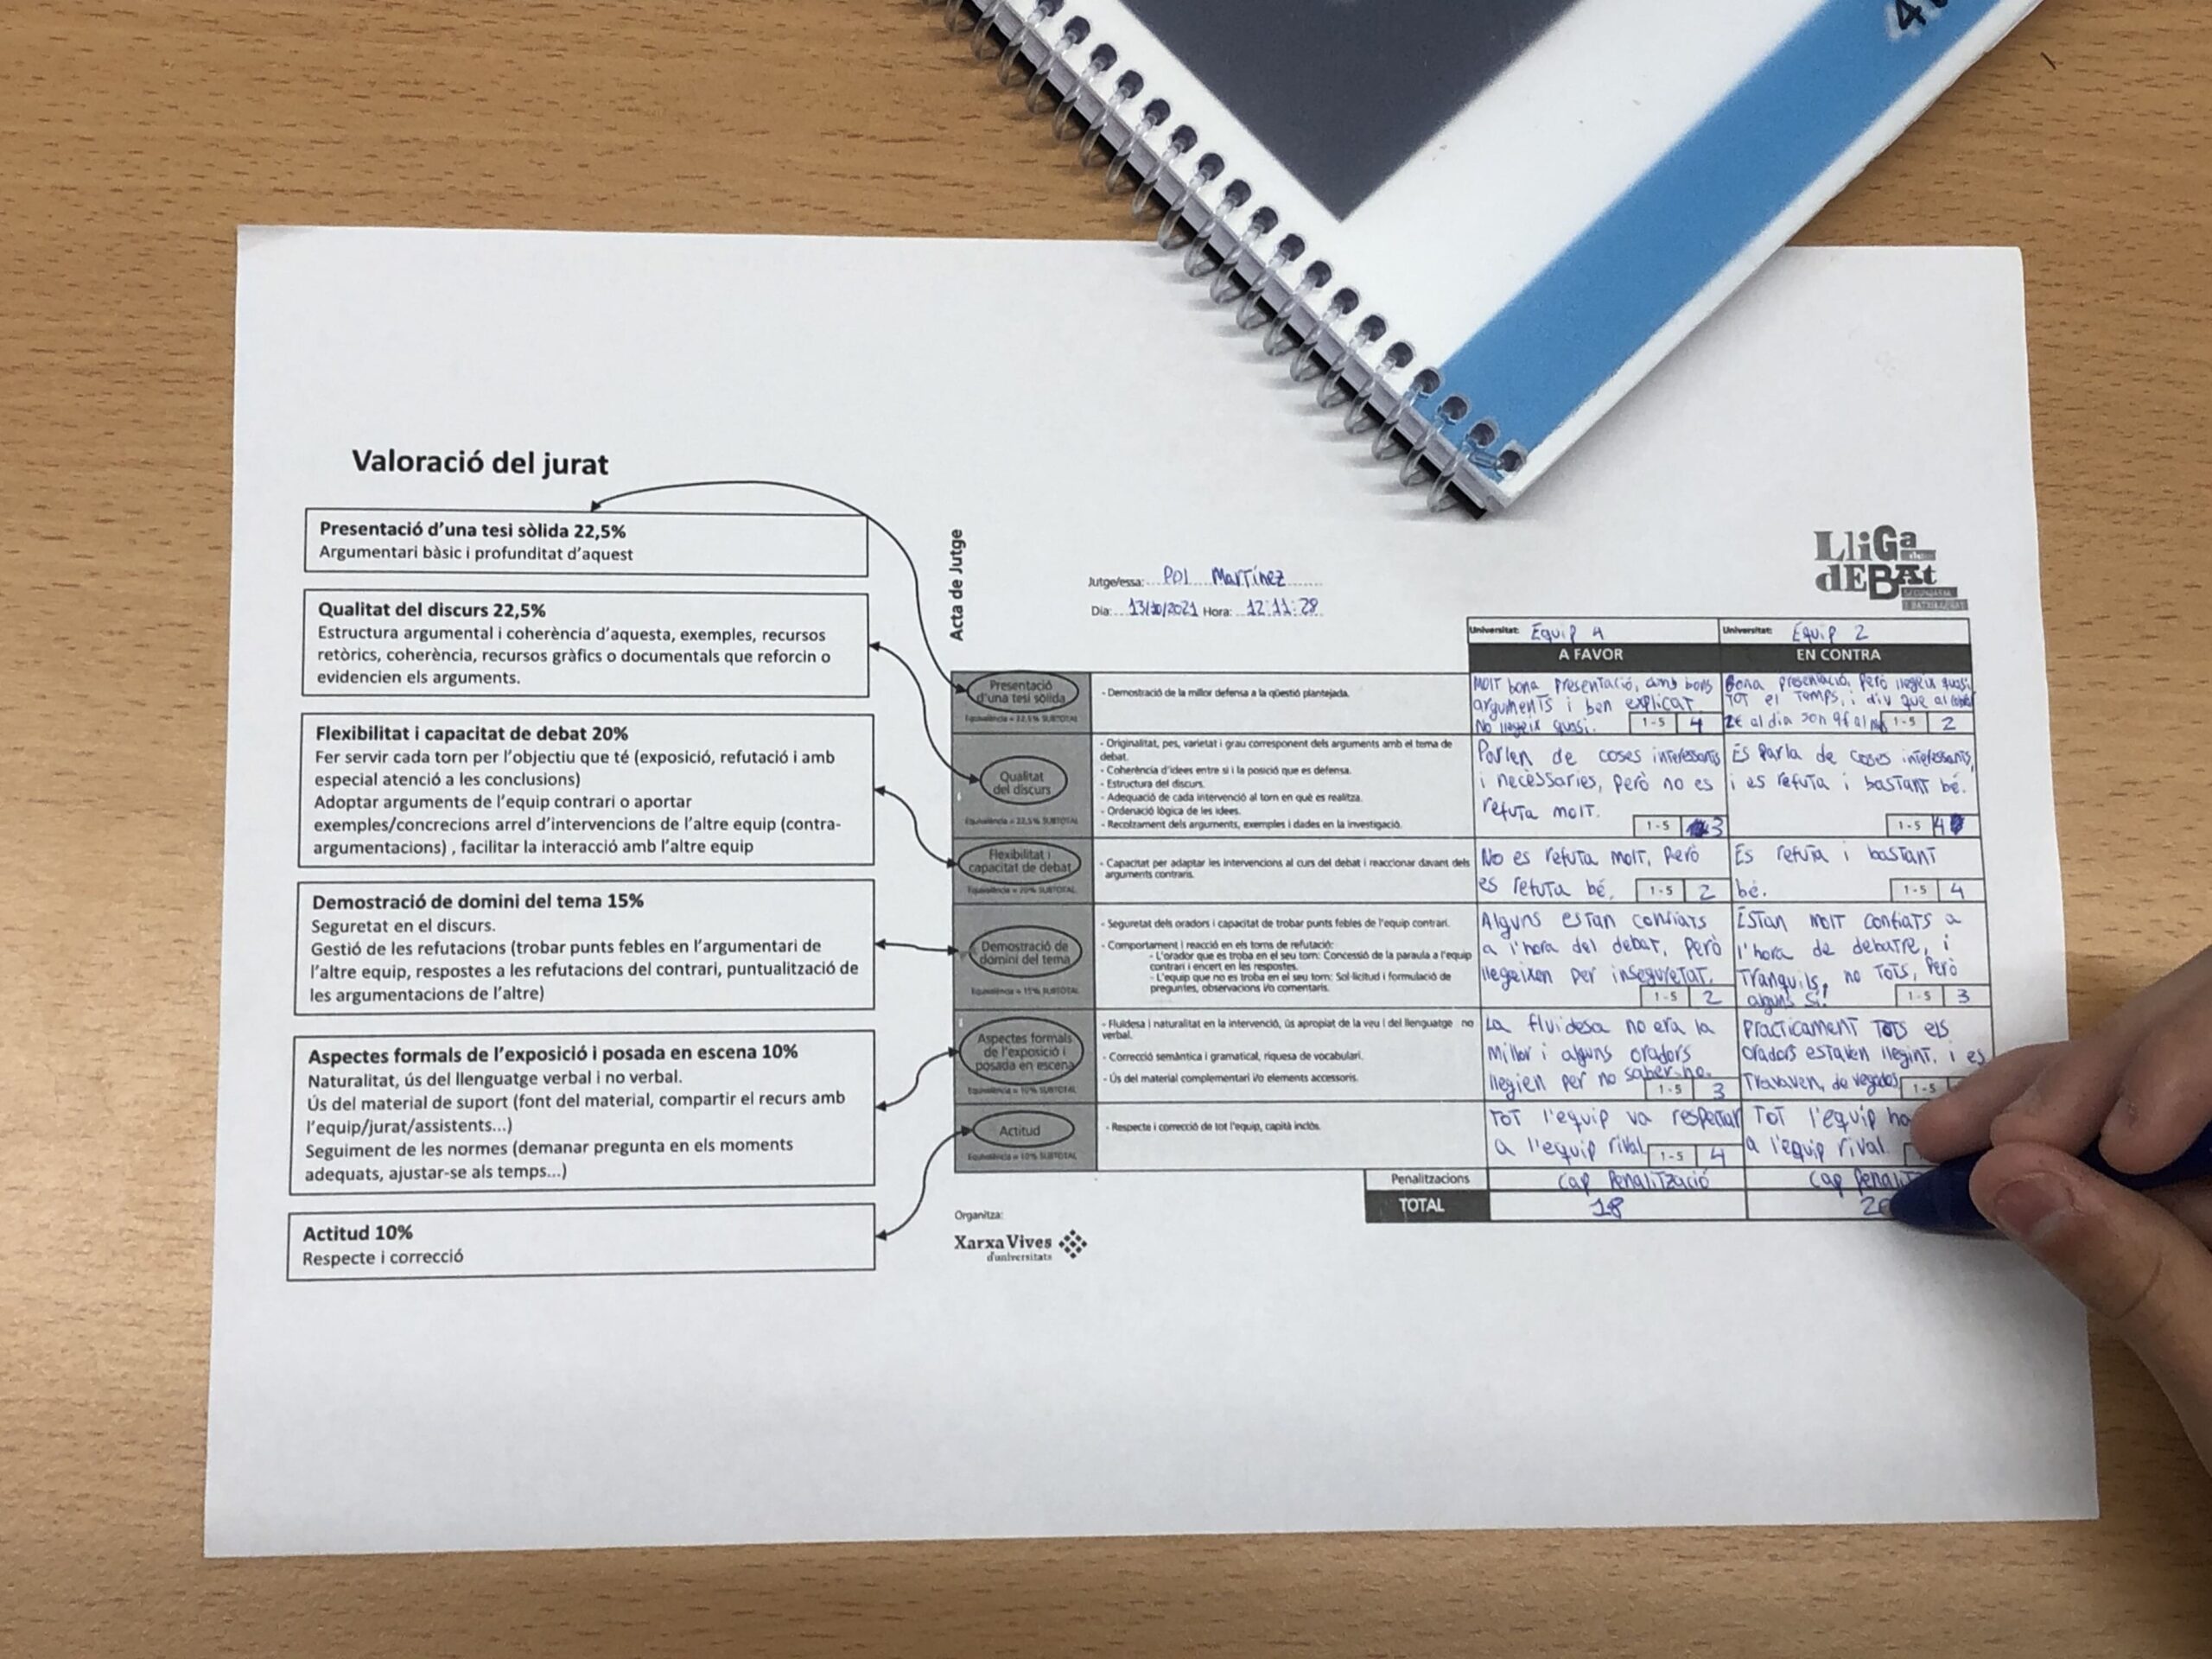 Valoració del jurat
Presentació d'una tesi sòlida 22,5%
Argumentari bàsic i profunditat d'aquest
Qualitat del discurs 22,5%
Estructura argumental i coherència d'aquesta, exemples, recursos
retòrics, coherència, recursos gràfics o documentals que reforcin o
evidencien els arguments.
Flexibilitat i capacitat de debat 20%
Fer servir cada torn per l'objectiu que té (exposició, refutació i amb
especial atenció a les conclusions)
Adoptar arguments de l'equip contrari o aportar
exemples/concrecions arrel d'intervencions de l'altre equip (contra-
argumentacions) , facilitar la interacció amb l'altre equip
Demostració de domini del tema 15%
Seguretat en el discurs.
Gestió de les refutacions (trobar punts febles en l'argumentari de
l'altre equip, respostes a les refutacions del contrari, puntualització de
les argumentacions de l'altre)
Aspectes formals de l'exposició i posada en escena 10%
Naturalitat, ús del llenguatge verbal i no verbal.
Ús del material de suport (font del material, compartir el recurs amb
l'equip/jurat/assistents...)
Seguiment de les normes (demanar pregunta en els moments
adequats, ajustar-se als temps...)
Actitud 10%
Respecte i correcció
Acta de Jutge
Jutge/essa: Pol Martínez
Dia: 13/10/2021 Hora: 12:11:28
LLiGa
de
dEBAt
SECUNDÀRIA
I BATXILLERAT
Universitat: Equip 1
Universitat: Equip 2
A FAVOR
EN CONTRA
Presentació
d'una tesi sòlida
Equivalència = 22,5% SUBTOTAL
- Demostració de la millor defensa a la qüestió plantejada.
Molt bona presentació, amb bons
arguments i ben explicat.
No llegeix quasi. 1 - 5 4
Bona presentació, però llegeix quasi
tot el temps, i diu que al
2€ al dia son 9€ al 1 - 5 2
Qualitat
del discurs
Equivalència = 22,5% SUBTOTAL
- Originalitat, pes, varietat i grau corresponent dels arguments amb el tema de
debat.
- Coherència d'idees entre si i la posició que es defensa.
- Estructura del discurs.
- Adequació de cada intervenció al torn en què es realitza.
- Ordenació lògica de les idees.
- Recolzament dels arguments, exemples i dades en la investigació.
Parlen de coses interessants
i necessaries, però no es
refuta molt.
1 - 5 3
Es parla de coses interessants,
i es refuta i bastant bé.
1 - 5 4
Flexibilitat i
capacitat de debat
Equivalència = 20% SUBTOTAL
- Capacitat per adaptar les intervencions al curs del debat i reaccionar davant dels
arguments contraris.
No es refuta molt, però
es refuta bé. 1 - 5 2
Es refuta i bastant
bé. 1 - 5 4
Demostració de
domini del tema
Equivalència = 15% SUBTOTAL
- Seguretat dels oradors i capacitat de trobar punts febles de l'equip contrari.
- Comportament i reacció en els torns de refutació:
- L'orador que es troba en el seu torn: Concessió de la paraula a l'equip
contrari i encert en les respostes.
- L'equip que no es troba en el seu torn: Sol·licitud i formulació de
preguntes, observacions i/o comentaris.
Alguns estan confiats
a l'hora del debat, però
llegeixen per inseguretat.
1 - 5 2
Estan molt confiats a
l'hora de debatre, i
tranquils, no tots, però
alguns sí! 1 - 5 3
Aspectes formals
de l'exposició i
posada en escena
Equivalència = 10% SUBTOTAL
- Fluïdesa i naturalitat en la intervenció, ús apropiat de la veu i del llenguatge no
verbal.
- Correcció semàntica i gramatical, riquesa de vocabulari.
- Ús del material complementari i/o elements accessoris.
La fluidesa no era la
millor i alguns oradors
llegien per no saber-ho.
1 - 5 3
Practicament tots els
oradors estaven llegint, i es
travaven, de vegades 1 - 5
Actitud
Equivalència = 10% SUBTOTAL
- Respecte i correcció de tot l'equip, capità inclòs.
Tot l'equip va respectar
a l'equip rival 1 - 5 4
Tot l'equip ho
a l'equip rival
Penalitzacions
cap penalització
cap
TOTAL
18
Organitza:
Xarxa Vives
d'universitats